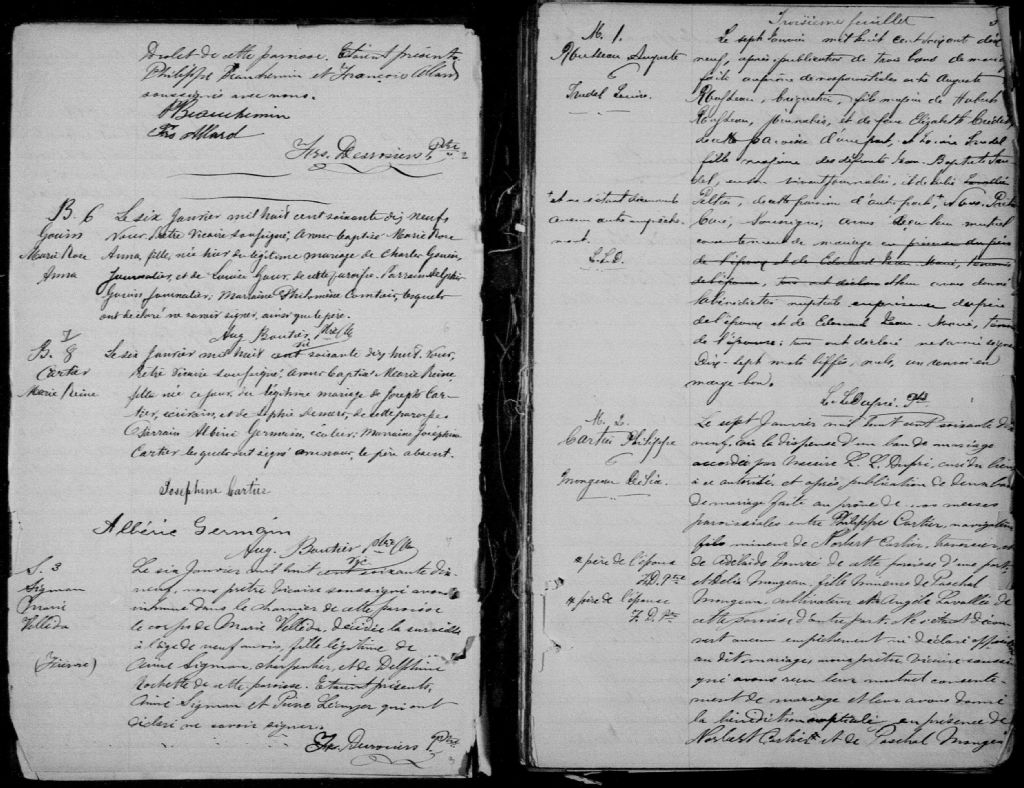 Drolet de cette paroisse. Etaient présents
Philippe Beauchemin et François Allard
soussignés avec nous.
P Beauchemin
Frs Allard
Frs. Desrosiers Ptre
B. 6
Gouin
Marie Rose
Anna
Le six Janvier mil huit cent soixante dix neuf
Nous, Prêtre Vicaire soussigné, avons baptisé Marie Rose
Anna fille, née hier du légitime mariage de Charles Gouin,
Journalier, et de Louise de cette paroisse. Parrain
Gouin Journalier; Marraine Philomène Comtois, lesquels
ont déclaré ne savoir signer, ainsi que le père.
Aug Boutier Ptre
B. 8
Cartier
Marie Reine
Le six Janvier mil huit cent soixante dix Nous,
Prêtre Vicaire soussigné, avons baptisé Marie Reine,
fille née ce jour, du légitime mariage de Joseph Car-
tier, écrivain, et de Sophie de cette paroisse
Parrain Albéric Germain, écolier; Marraine Joséphine
Cartier lesquels ont signé avec nous, le père absent.
Josephine Cartier
Albéric Germain
Aug. Boutier Ptre
S. 3
Sigman
Marie
Velléda
Le six Janvier mil huit cent soixante dix-
neuf, nous prêtre Vicaire soussigné avons
inhumé dans le charnier de cette paroisse
le corps de Marie Velléda, décédée la surveille
à l'âge de neuf mois, fille légitime de
Aimé Sigman, charpentier, et de Delphine
Rochette de cette paroisse. Etaient présents,
Aimé Sigman et Pierre qui ont
déclaré ne savoir signer.
Frs Desrosiers Ptre
Troisième feuillet
M. 1.
Rousseau Auguste
Trudel Louise.
Le sept Janvier mil huit cent soixante dix
neuf, après publication de trois bans de mariage
faite au prône de nos messes paroissiales entre Auguste
Rousseau, briquetier, fils majeur de Hubert
Rousseau, Journalier, et de feue Elizabeth
de cette paroisse d'une part, et Louise Trudel
fille majeure des défunts Jean-Baptiste Tru-
del, en son vivant journalier, et de Julie Lavallée
Peltier, de cette paroisse d'autre part, Nous Prêtre
Curé, soussigné, avons reçu leur mutuel
consentement de mariage en présence du père
de l'époux et de Edouard Jean-Marie, témoin
de l'épouse, tous ont déclaré et leur avons donné
la bénédiction nuptiale en présence du père
de l'époux et de Edouard Jean-Marie, témoin
de l'épouse; tous ont déclaré ne savoir signer
Dix-sept mots biffés, nuls, un renvoi en
marge bon.
L. L. Dupré. Ptre
et ne s'étant découvert
aucun autre empêche-
ment.
L.L.D.
M. 2.
Cartier Philippe
Mongeau Délia.
Le sept Janvier mil huit cent soixante dix
neuf, vu la dispense d'un ban de mariage
accordée par messire L. L. Dupré, curé du lieu
à ce autorisé, et après publication de deux bans
de mariage faite au prône de nos messes
paroissiales entre Philippe Cartier, navigateur
fils mineur de Norbert Cartier, et
de Adélaïde de cette paroisse d'une part
et Délia Mongeau, fille mineure de Paschal
Mongeau, cultivateur et Angèle Lavallée de
cette paroisse d'autre part. Ne s'étant décou-
vert aucun empêchement ni déclaré opposition
au dit mariage, nous prêtre vicaire soussi-
gné avons reçu leur mutuel consente-
ment de mariage et leur avons donné
la bénédiction nuptiale en présence de
Norbert Cartier et de Paschal Mongeau
père de l'époux
F.D. Ptre
père de l'épouse
F. D. Ptre